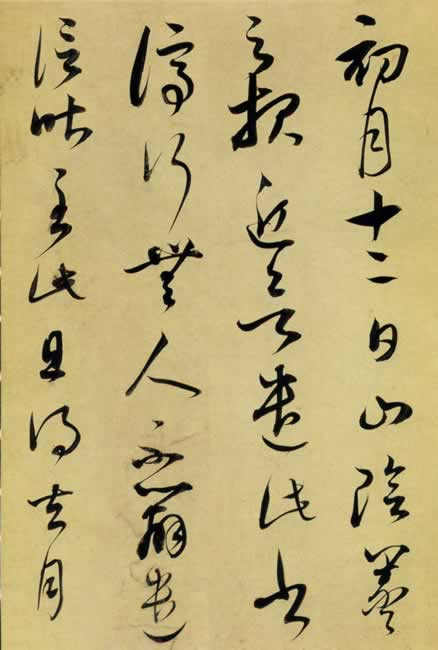 初月十二日山陰羲
之報近欲遣此書
停行無人不辨遣
信昨至此且得去月